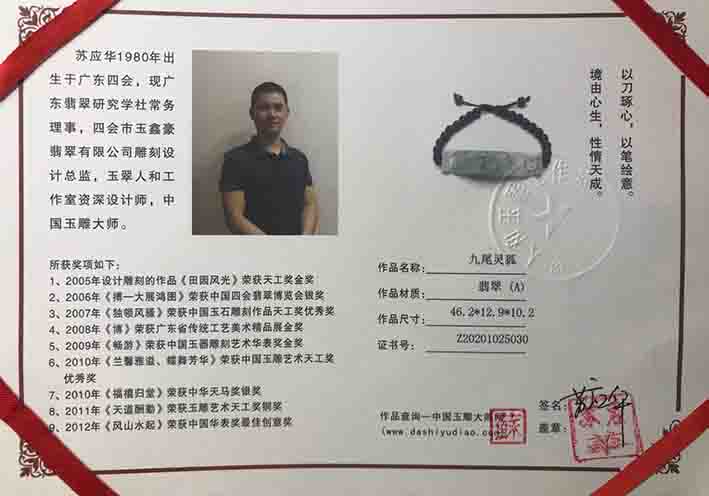 苏应华1980年出
生于广东四会，现广
东翡翠研究学社常务
理事，四会市玉鑫豪
翡翠有限公司雕刻设
计总监，玉翠人和工
作室资深设计师，中
国玉雕大师。
以刀琢心，以笔绘意。
境由心生，性情天成。
所获奖项如下：
1、2005年设计雕刻的作品《田园风光》荣获天工奖金奖
2、2006年《搏一大展鸿图》荣获中国四会翡翠博览会银奖
3、2007年《独领风骚》荣获中国玉石雕刻作品天工奖优秀奖
4、2008年《博》荣获广东省传统工艺美术精品展金奖
5、2009年《畅游》荣获中国玉器雕刻艺术华表奖金奖
6、2010年《兰馨雅溢、蝶舞芳华》荣获中国玉雕艺术天工奖
优秀奖
7、2010年《福禧归堂》荣获中华天马奖银奖
8、2011年《天道酬勤》荣获玉雕艺术天工奖铜奖
9、2012年《风山水起》荣获中国华表奖最佳创意奖
作品名称：九尾灵狐
作品材质：翡翠（A）
作品尺寸：46.2*12.9*10.2
证书号：Z20201025030
作品查询—中国玉雕大师网
(www.dashiyudiao.com)
签名：
盖章：